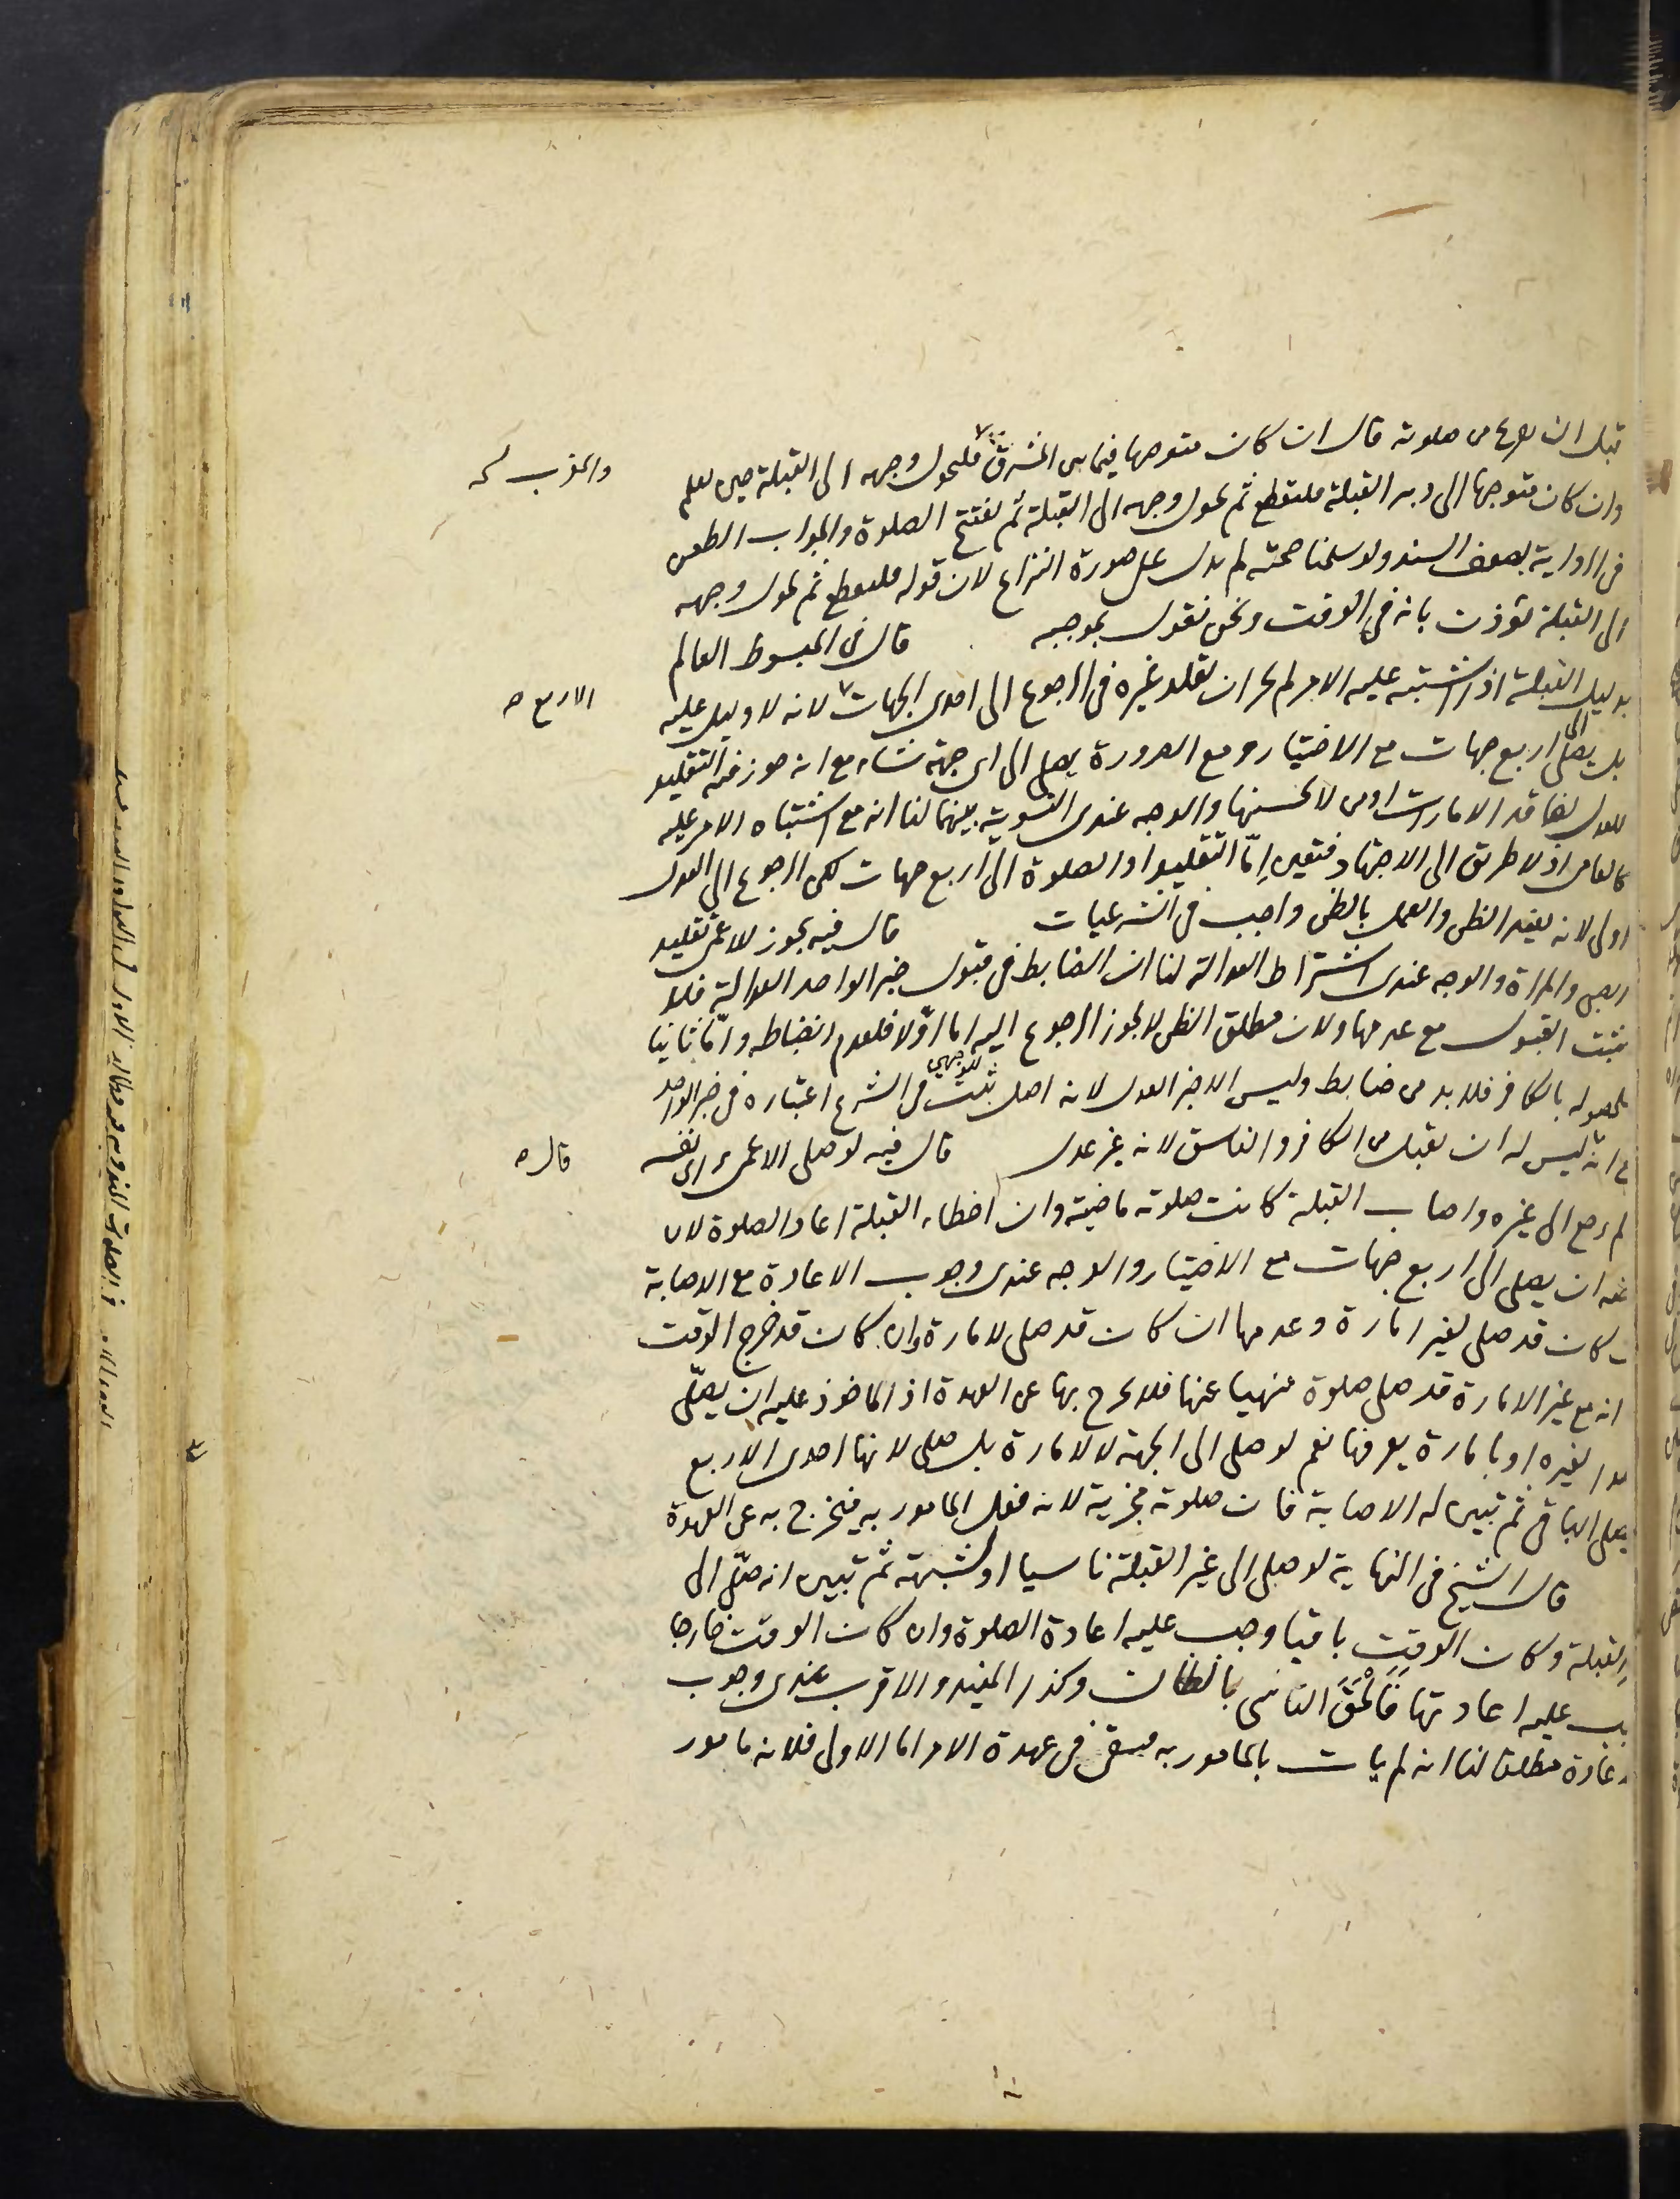 قبل ان يفرغ من صلوته قال ان كان متوجها فيما بين المشرق فليحول وجهه الى القبلة حين يعلم
والمغرب
وان كان متوجها الى دبر القبلة فليقطع ثم يحول وجهه الى القبلة ثم يفتتح الصلوة والجواب الطعن
فى الرواية بضعف السند ولو سلمنا صحته لم يدل على صورة النزاع لان قوله فليقطع ثم يحول وجهه
الى القبلة يؤذن بانه فى الوقت ونحن نقول بموجبه قال فى المبسوط العالم
بدليل القبلة اذا اشتبه عليه الامر لم يجز ان يقلد غيره فى الرجوع الى احدى الجهات لانه لا دليل عليه
الاربع
بل يصلى الى اربع جهات مع الاختيار ومع الضرورة يصلى الى اى جهة شاء مع انه جوز فيه التقليد
للعدل لفاقد الامارات او من لا يحسنها والوجه عندى التسوية بينهما لنا انه مع اشتباه الامر عليه
كالعامى اذ لا طريق الى الاجتهاد فتعين امّا التقليد او الصلوة الى اربع جهات لكن الرجوع الى العدل
اولى لانه يفيد الظن والعمل بالظن واجب فى الشرعيات قال فيه يجوز للاعمى تقليد
الصبى والمراة والوجه عندى اشتراط العدالة لنا ان الضابط فى قبول خبر الواحد العدالة فلا
يثبت القبول مع عدمها ولان مطلق الظن لا يجوز الرجوع اليه اما اوّلا فلعدم انضباطه وامّا ثانيا
فلحصوله بالكافر فلا بد من ضابط وليس الا خبر العدل لانه اصل ثبت فى الشرع اعتباره فى خبر الواحد
مع انه ليس له ان يقبل من الكافر والفاسق لانه غير عدل قال فيه لو صلى الاعمى براى نفسه
قال
لم يرجع الى غيره واصاب القبلة كانت صلوته ماضية وان اخطاء القبلة اعاد الصلوة لان
عليه ان يصلى الى اربع جهات مع الاختيار والوجه عندى وجوب الاعادة مع الاصابة
كان قد صلى لغير امارة وعدمها ان كان قد صلى لامارة وان كان قد خرج الوقت
انه مع غير الامارة قد صلى صلوة منهيا عنها فلا يخرج بها عن العهدة اذ الماخوذ عليه ان يصلّى
لغيره او بامارة يعرفها نعم لو صلى الى الجهة لا لامارة بل صلى لانها احدى الاربع
يصلى الباقى ثم تبين له الاصابة فان صلوته مجزية لانه فعل المامور به فيخرج به عن العهدة
قال الشيخ فى النهاية لو صلى الى غير القبلة ناسيا او لشبهة ثم تبين انه صلّى الى
القبلة وكان الوقت باقيا وجب عليه اعادة الصلوة وان كان الوقت خارجا
يجب عليه اعادتها فَالْحَقَ الناسى بالظان وكذا المفيد والاقرب عندى وجوب
الاعادة مطلقا لنا انه لم يات بالمامور به فيبقى فى عهدة الامر اما الاول فلانه مامور